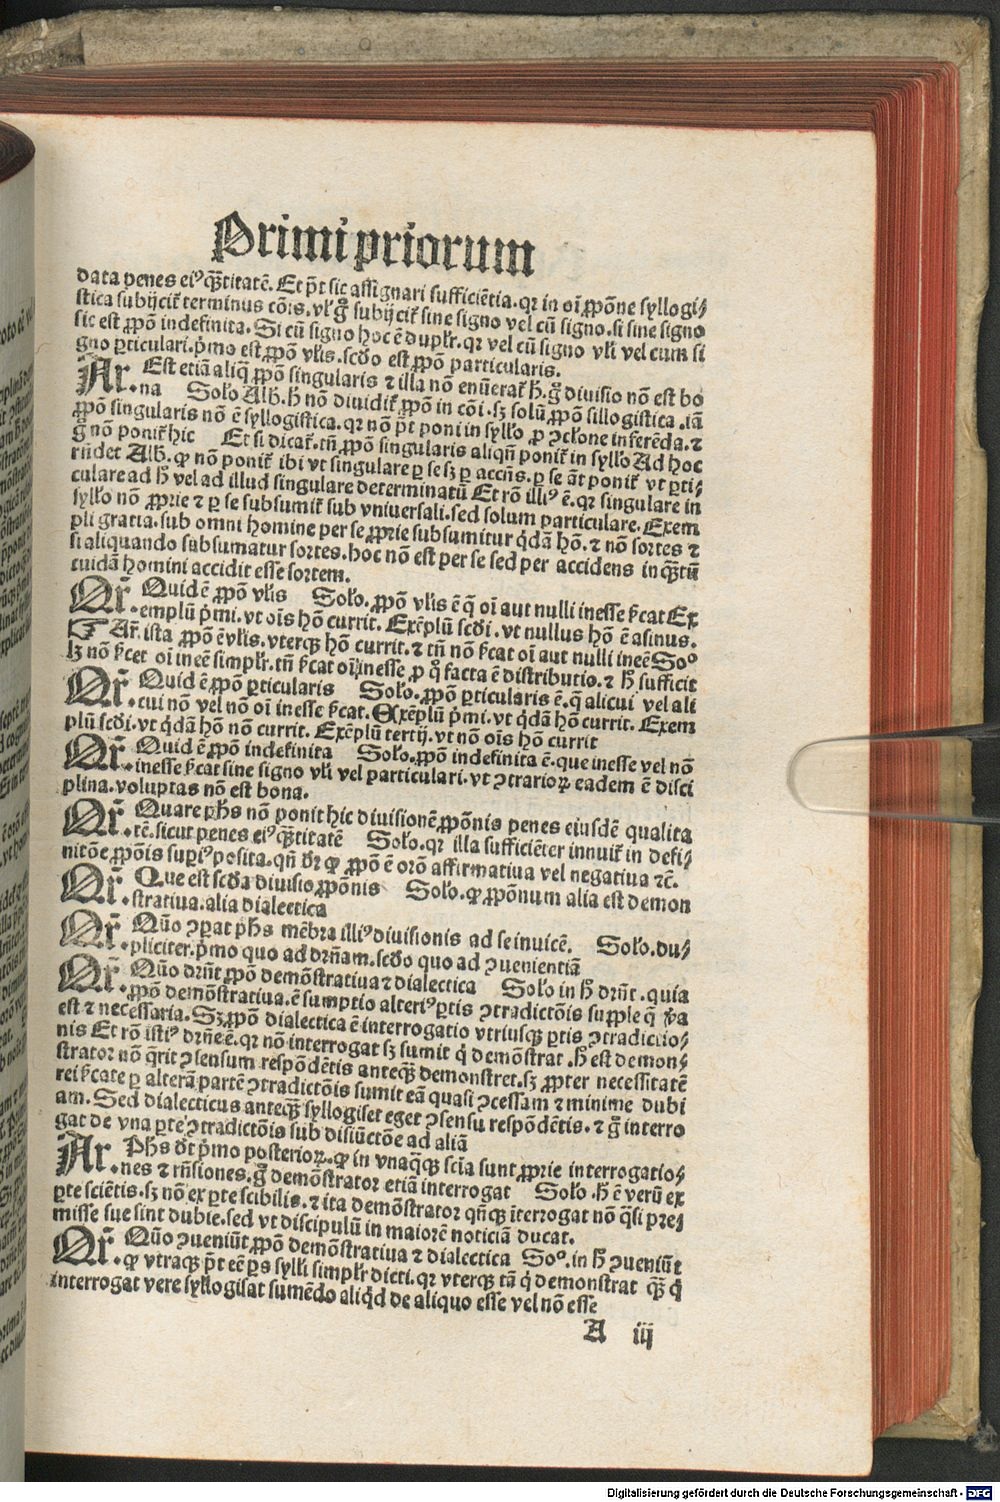 Primi priorum
data penes eiꝰ q̄ꝫtitatē. Et pt̄ sic assignari sufficiētia. qꝛ in oī ꝓpōne syllogi⸗
stica subijcit᷑ terminus cōis. vl̓ g̊ subijcit᷑ sine signo vel cū signo. si sine signo
sic est ꝓpō indefinita. Si cū signo hoc ē duplr̓. qꝛ vel cū signo vl̓i vel cum si
gno ꝑticulari. p̓mo est ꝓpō vl̓is. scd̓o est ꝓpō particularis.
Ar. Est etiā aliq̄ ꝓpō singularis ⁊ illa nō enūerat᷑ h̄. g̊ diuisio nō est bo
na Solo Alb. h̄ nō diuidit᷑ ꝓpō in cōi. sꝫ solū ꝓpō sillogistica. iā
ꝓpō singularis nō ē syllogistica. qꝛ nō pt̄ poni in syllo ꝓ ꝯclone inferēda. ⁊
g̊ nō ponit᷑ hic Et si dicat᷑. tn̄ ꝓpō singularis aliqn̄ ponit᷑ in syllo Ad hoc
rn̄det Alb. ꝙ nō ponit᷑ ibi vt singulare ꝑ se sꝫ ꝑ accn̄s. ꝑ se āt ponit᷑ vt ꝑti⸗
culare ad h̄ vel ad illud singulare determinatū Et rō illiꝰ ē. qꝛ singulare in
syllo nō ꝓprie ⁊ ꝑ se subsumit᷑ sub vniuersali. sed solum particulare. Exem
pli gratia. sub omni homine per se ꝓprie subsumitur q̇dā hō. ⁊ nō sortes ⁊
si aliquando subsumatur sortes. hoc nō est per se sed per accidens inq̄ꝫtū
cuidā homini accidit esse sortem.
Qr̄. Quid ē ꝓpō vl̓is Solo. ꝓpō vl̓is ē q̄ oī aut nulli inesse s̄cat Ex
emplū p̓mi. vt oīs hō currit. Exēplū scd̓i. vt nullus hō ē asinus.
☞ Ar. ista ꝓpō ē vl̓is. vterqꝫ hō currit. ⁊ tn̄ nō s̄cat oī aut nulli ineē Soº
lꝫ nō s̄cet oī ineē simplr̓. tn̄ s̄cat oī inesse ꝓ q̊ facta ē distributio. ⁊ h̄ sufficit
Qr̄. Quid ē ꝓpō ꝑticularis Solo. ꝓpō ꝑticularis ē. q̄ alicui vel ali
cui non vel nō oī inesse s̄cat. Exēplū p̓mi. vt q̇dā hō currit. Exem
plū scd̓i. vt q̇dā hō nō currit. Exēplū tertij. vt nō oīs hō currit
Qr̄. Quid ē ꝓpō indefinita Solo. ꝓpō indefinita ē. que inesse vel nō
inesse s̄cat sine signo vl̓i vel particulari. vt ꝯtrarioꝝ eadem ē disci
plina. voluptas nō est bona.
Qr̄. Quare ph̄s nō ponit hic diuisionē ꝓpōnis penes eiusdē qualita
tē. sicut penes eiꝰ q̄ꝫtitatē Solo. qꝛ illa sufficiēter innuit᷑ in defi⸗
nitōe ꝓpōis supiꝰ posita. qn̄ dr̄ ꝙ ꝓpō ē orō affirmatiua vel negatiua ⁊c̄.
Qr̄. Que est scd̓a diuisio ꝓpōnis Solo. ꝙ ꝓpōnum alia est demon
stratiua. alia dialectica
Qr̄. Quō ꝯpat ph̄s mēbra illiꝰ diuisionis ad seinuicē. Solo. du⸗
pliciter. p̓mo quo ad drn̄am. scd̓o quo ad ꝯuenientiā
Qr̄. Quō drn̄t ꝓpō demōstratiua ⁊ dialectica Solo in h̄ drn̄t. quia
ꝓpō demōstratiua. ē sumptio alteriꝰ ꝑtis ꝯtradictōis supple q̄ v̓a
est ⁊ necessaria. Sꝫ ꝓpō dialectica ē interrogatio vtriusqꝫ ꝑtis ꝯtradictio⸗
nis Et rō istiꝰ drn̄e ē. qꝛ nō interrogat sꝫ sumit q̇ demōstrat. h̄ est demon⸗
strator nō q̄rit ꝯsensum respōdētis anteqꝫ demonstret. sꝫ ꝓpter necessitatē
rei s̄cate ꝑ alterā partē ꝯtradictōis sumit eā quasi ꝯcessam ⁊ minime dubi
am. Sed dialecticus anteqꝫ syllogiset eget ꝯsensu respōdētis. ⁊ g̊ interro
gat de vna ꝑte ꝯtradictōis sub disiūctōe ad aliā
Ar. Ph̄s dt̄ p̓mo posterioꝝ. ꝙ in vnaq̄qꝫ scīa sunt ꝓprie interrogatio⸗
nes ⁊ rn̄siones. g̊ demōstrator etiā interrogat Solo. h̄ ē verū ex
ꝑte sciētis. sꝫ nō ex ꝑte scibilis. ⁊ ita demōstrator qn̄qꝫ īterrogat nō q̄si pre⸗
misse sue sint dubie. sed vt discipulū in maiorē noticiā ducat.
Qr̄. Quō ꝯueniūt ꝓpō demōstratiua ⁊ dialectica Soº. in h̄ ꝯueniūt
ꝙ vtraqꝫ pt̄ eē ps̄ sylli simplr̓ dicti. qꝛ vterqꝫ tā q̇ demonstrat q̄ꝫ q̇
interrogat vere syllogisat sumēdo aliq̇d de aliquo esse vel nō esse
A iij
Digitalisierung gefördert durch die Deutsche Forschungsgemeinschaft - DFG